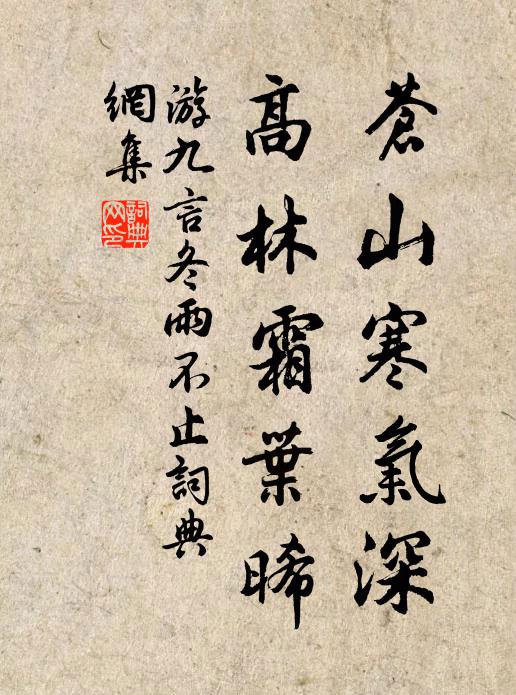 蒼山寒氣深
高林霜葉晞
游九言冬雨不止詞典
網集
詞典
网印